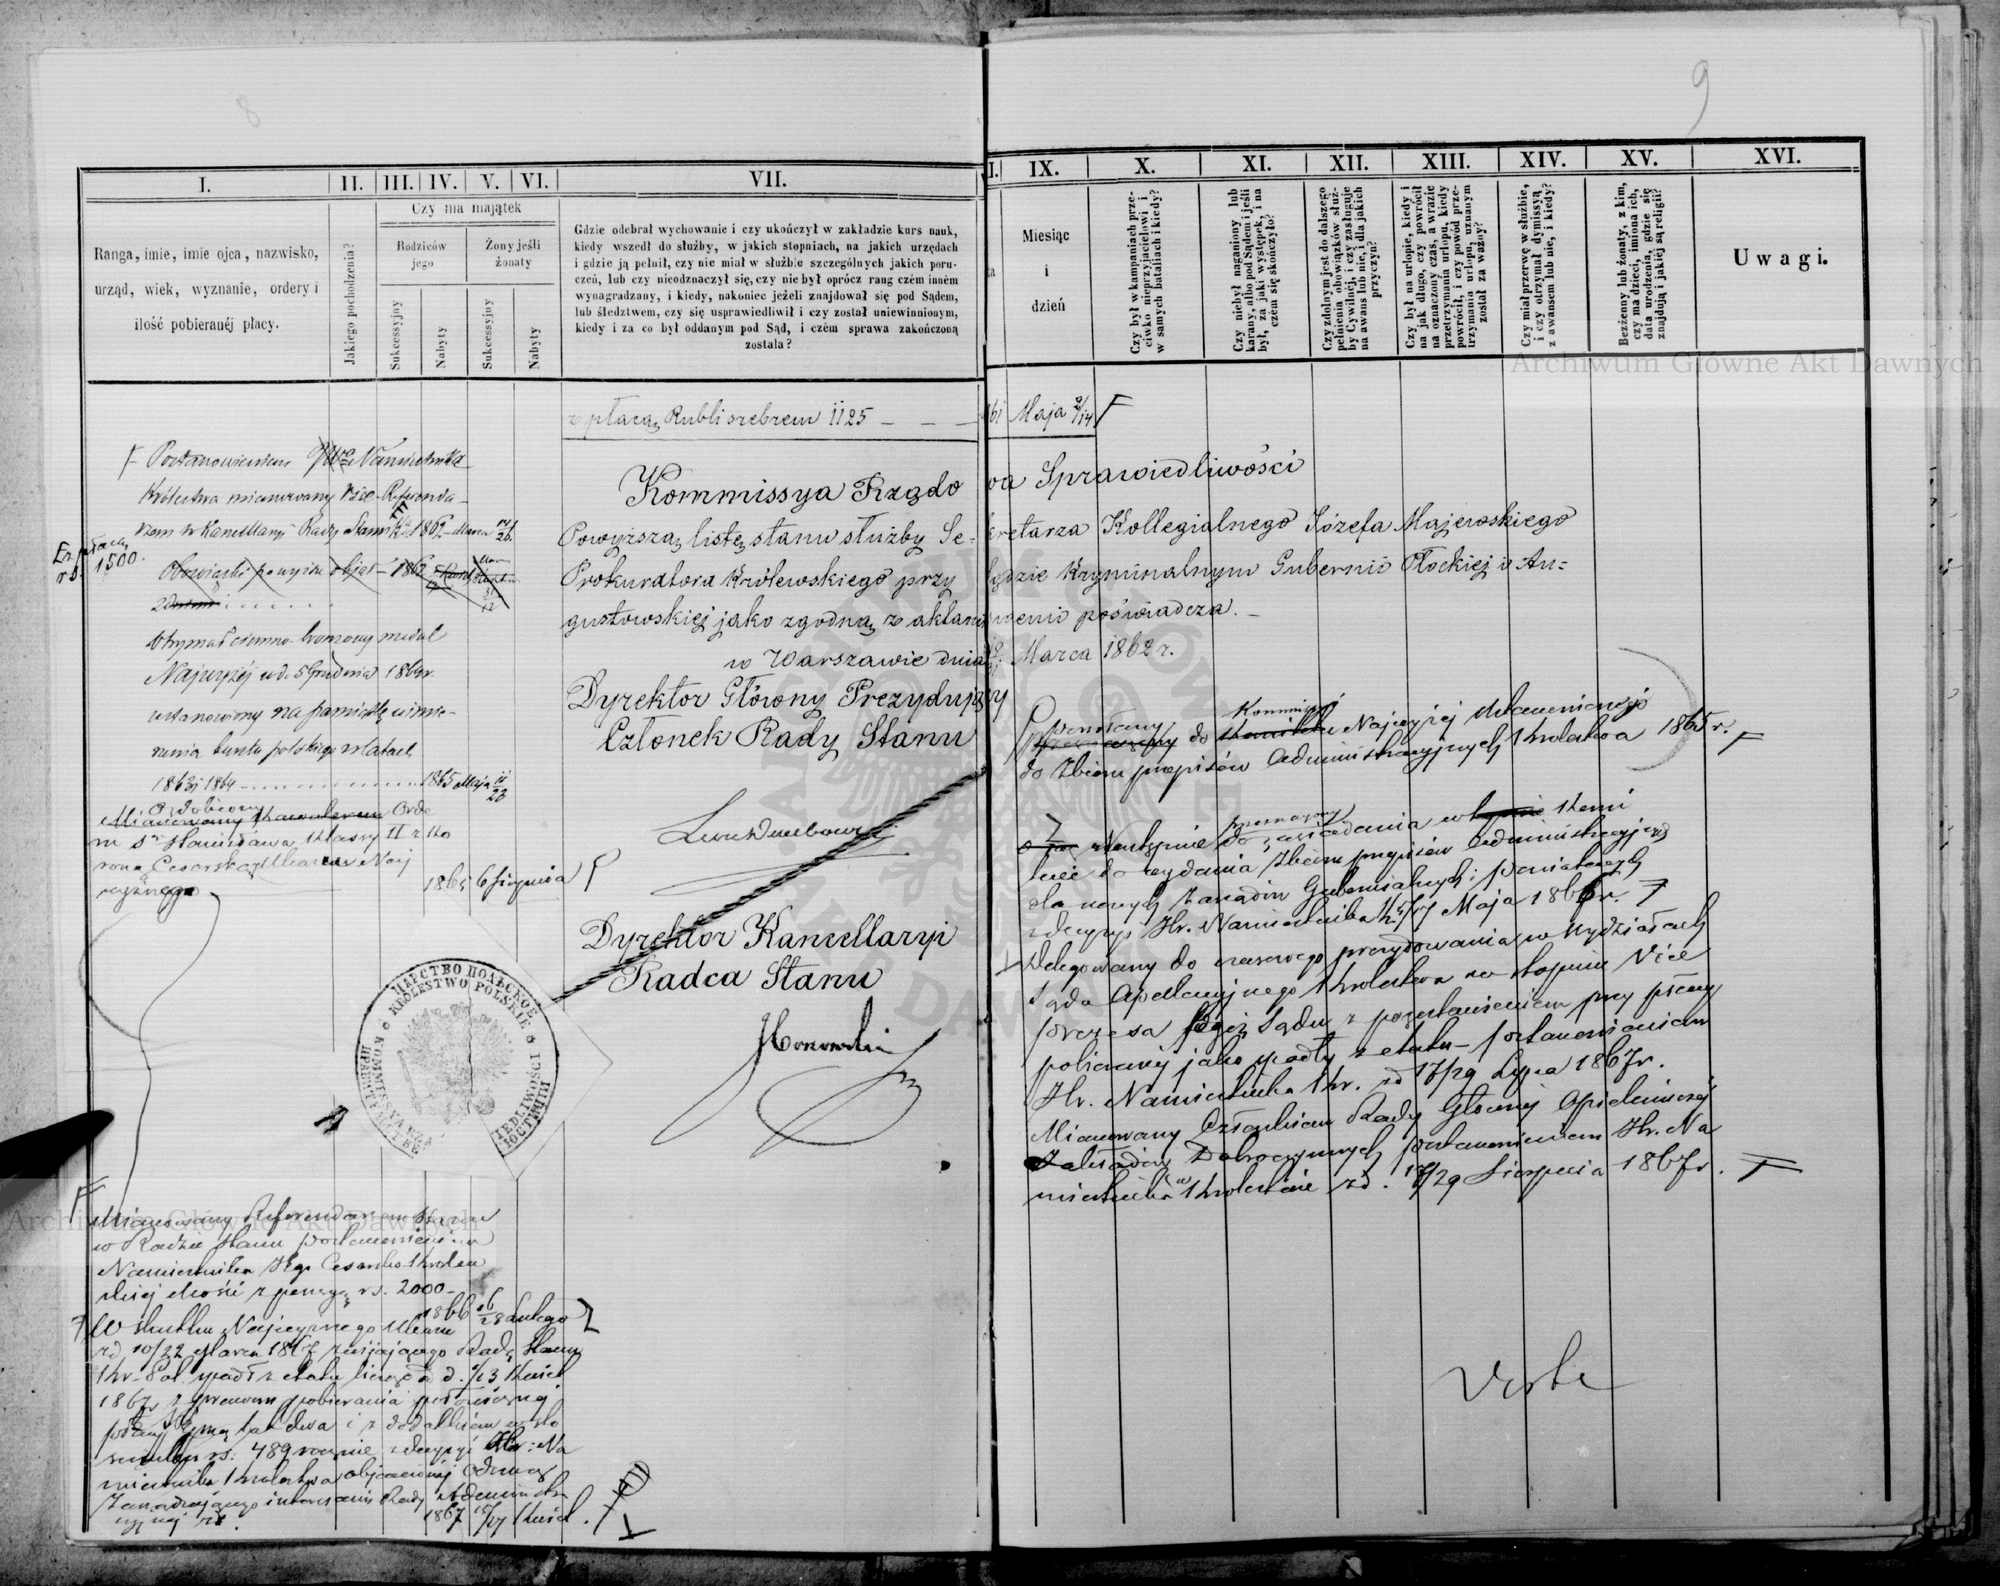 8
9
I. II. III. IV. V. VI. VII.
Ranga, imie, imie ojca, nazwisko,
urząd, wiek, wyznanie, ordery i
ilość pobieranéj płacy.
Jakiego pochodzenia?
Czy ma majątek
Rodziców
jego
Żony jeśli
żonaty
Sukcessyjny
Nabyty
Sukcessyjny
Nabyty
Gdzie odebrał wychowanie i czy ukończył w zakładzie kurs nauk,
kiedy wszedł do służby, w jakich stopniach, na jakich urzędach
i gdzie ją pełnił, czy nie miał w służbie szczególnych jakich poru-
czeń, lub czy nieodznaczył się, czy nie był oprócz rang czém inném
wynagradzany, i kiedy, nakoniec jeżeli znajdował się pod Sądem,
lub śledztwem, czy się usprawiedliwił i czy został uniewinnionym,
kiedy i za co był oddanym pod Sąd, i czém sprawa zakończoną
została?
IX. X. XI. XII. XIII. XIV. XV. XVI.
Miesiąc
i
dzień
Czy był w kampaniach prze-
ciwko nieprzyjacielowi i
w samych bataliach i kiedy?
Czy niebył naganiony lub
karany, albo pod Sądem i jeśli
był, za jaki występek, i na
czém się skończyło?
Czy zdolnym jest do dalszego
pełnienia obowiązków służ-
by Cywilnéj, i czy zasługuje
na awans lub nie, i dla jakich
przyczyn?
Czy był na urlopie, kiedy i
na jak długo, czy powrócił
na oznaczony czas, a w razie
przetrzymania urlopu, kiedy
powrócił, i czy powód prze-
trzymania urlopu, uznanym
został za ważny?
Czy miał przerwę w służbie,
i czy otrzymał dymissyą
z awansem lub nie, i kiedy?
Bezżenny lub żonaty, z kim,
czy ma dzieci, imiona ich,
data urodzenia, gdzie się
znajdują i jakiéj są religii?
Uwagi.
Archiwum Główne Akt Dawnych
z płacą Rubli srebrem 1125 — — — Maja 2/14
Kommissya Rządowa Sprawiedliwości
Powyższą listę stanu służby Sekretarza Kollegialnego Józefa Majewskiego
Prokuratora Królewskiego przy Sądzie Kryminalnym Gubernii Płockiej i Au=
gustowskiej jako zgodną z aktami niniejszemi poświadcza. —
w Warszawie dnia Marca 1862 r.
Dyrektor Główny Prezydujący
Członek Rady Stanu
Dyrektor Kancellaryi
Radca Stanu
Postanowieniem Namiestnika
Królestwa mianowany Vice-Referenda-
rzem w Kancellaryi Rady Stanu 1862 Marca
rs. 1500.
Obowiązki powyższe objął 1862
Otrzymał ciemno bronzowy medal
Najwyżéj ud. 5 Grudnia 1864 r.
ustanowiony na pamiątkę uśmie-
rzenia buntu polskiego w latach
1863 i 1864 1865 Maja
Ozdobiony
Mianowany Kawalerem Orde
ru Sgo Stanisława Klassy II z Ko
roną Cesarską Ukazem Naj
wyższym
1865 6 Sierpnia
ЦАРСТВО ПОЛЬСКОЕ
KRÓLESTWO POLSKIE
Mianowany Referendarzem Stanu
w Radzie Stanu postanowieniem
Namiestnika Jego Cesarsko Królew
skiej Mości z pensyą rs. 2000
1866 16/28 Lutego
W skutku Najwyższego Ukazu
zd 10/22 Marca 1867 zwijającego Radę Stanu
Kr. Pol. spadł z etatu licząc od d. 1/13 Kwiet
1867 r. z prawem pobierania
rs. 489 rocznie z decyzyi Hr: Na
miestnika Królestwa objawionéj Odezwą
Zarządzającego interesami Rady Administra
cyjnéj zd.
1867 15/27 Kwiet.
powołany Kommissyi
do Najwyżej Ustanowionéj
do Zbioru przepisów Administracyjnych Królestwa 1865 r.
Następnie do zasiadania w Komi
tecie do wydania Zbioru przepisów Administracyjnych
dla nowych Zarządów Gubernialnych i powiatowych
z decyzyi Hr. Namiestnika Maja 1866 r.
Delegowany do czasowego prezydowania w Wydziałach
Sądu Apellacyjnego Królestwa w stopniu Vice
prezesa tegoż Sądu z pozostawieniem przy płacy
pobieranéj jako spadły z etatu — postanowieniem
Hr. Namiestnika Kr. zd 17/29 Lipca 1867 r.
Mianowany Członkiem Rady Głównej Opiekuńczéj
Zakładów Dobroczynnych postanowieniem Hr. Na
miestnika w Królestwie zd. 17/29 Sierpnia 1867 r.
Verte
Archiwum Główne Akt Dawnych